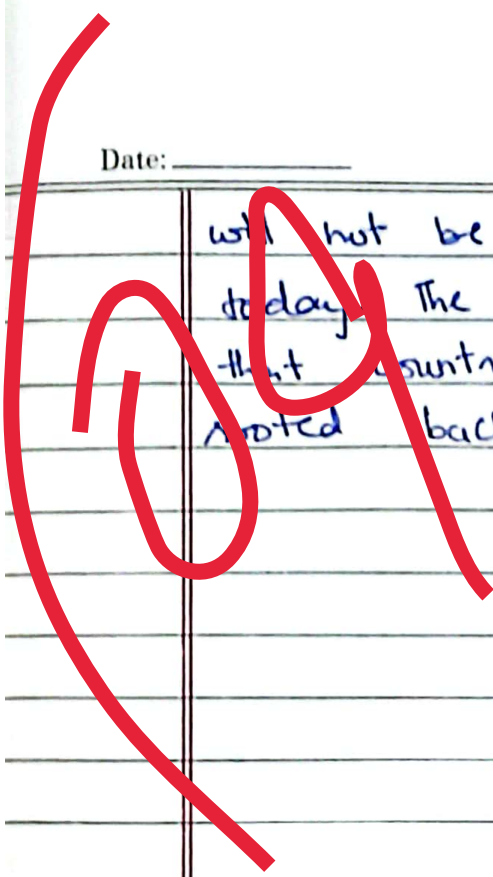 Date:
will not be
today. The
that countr
rooted bac
09